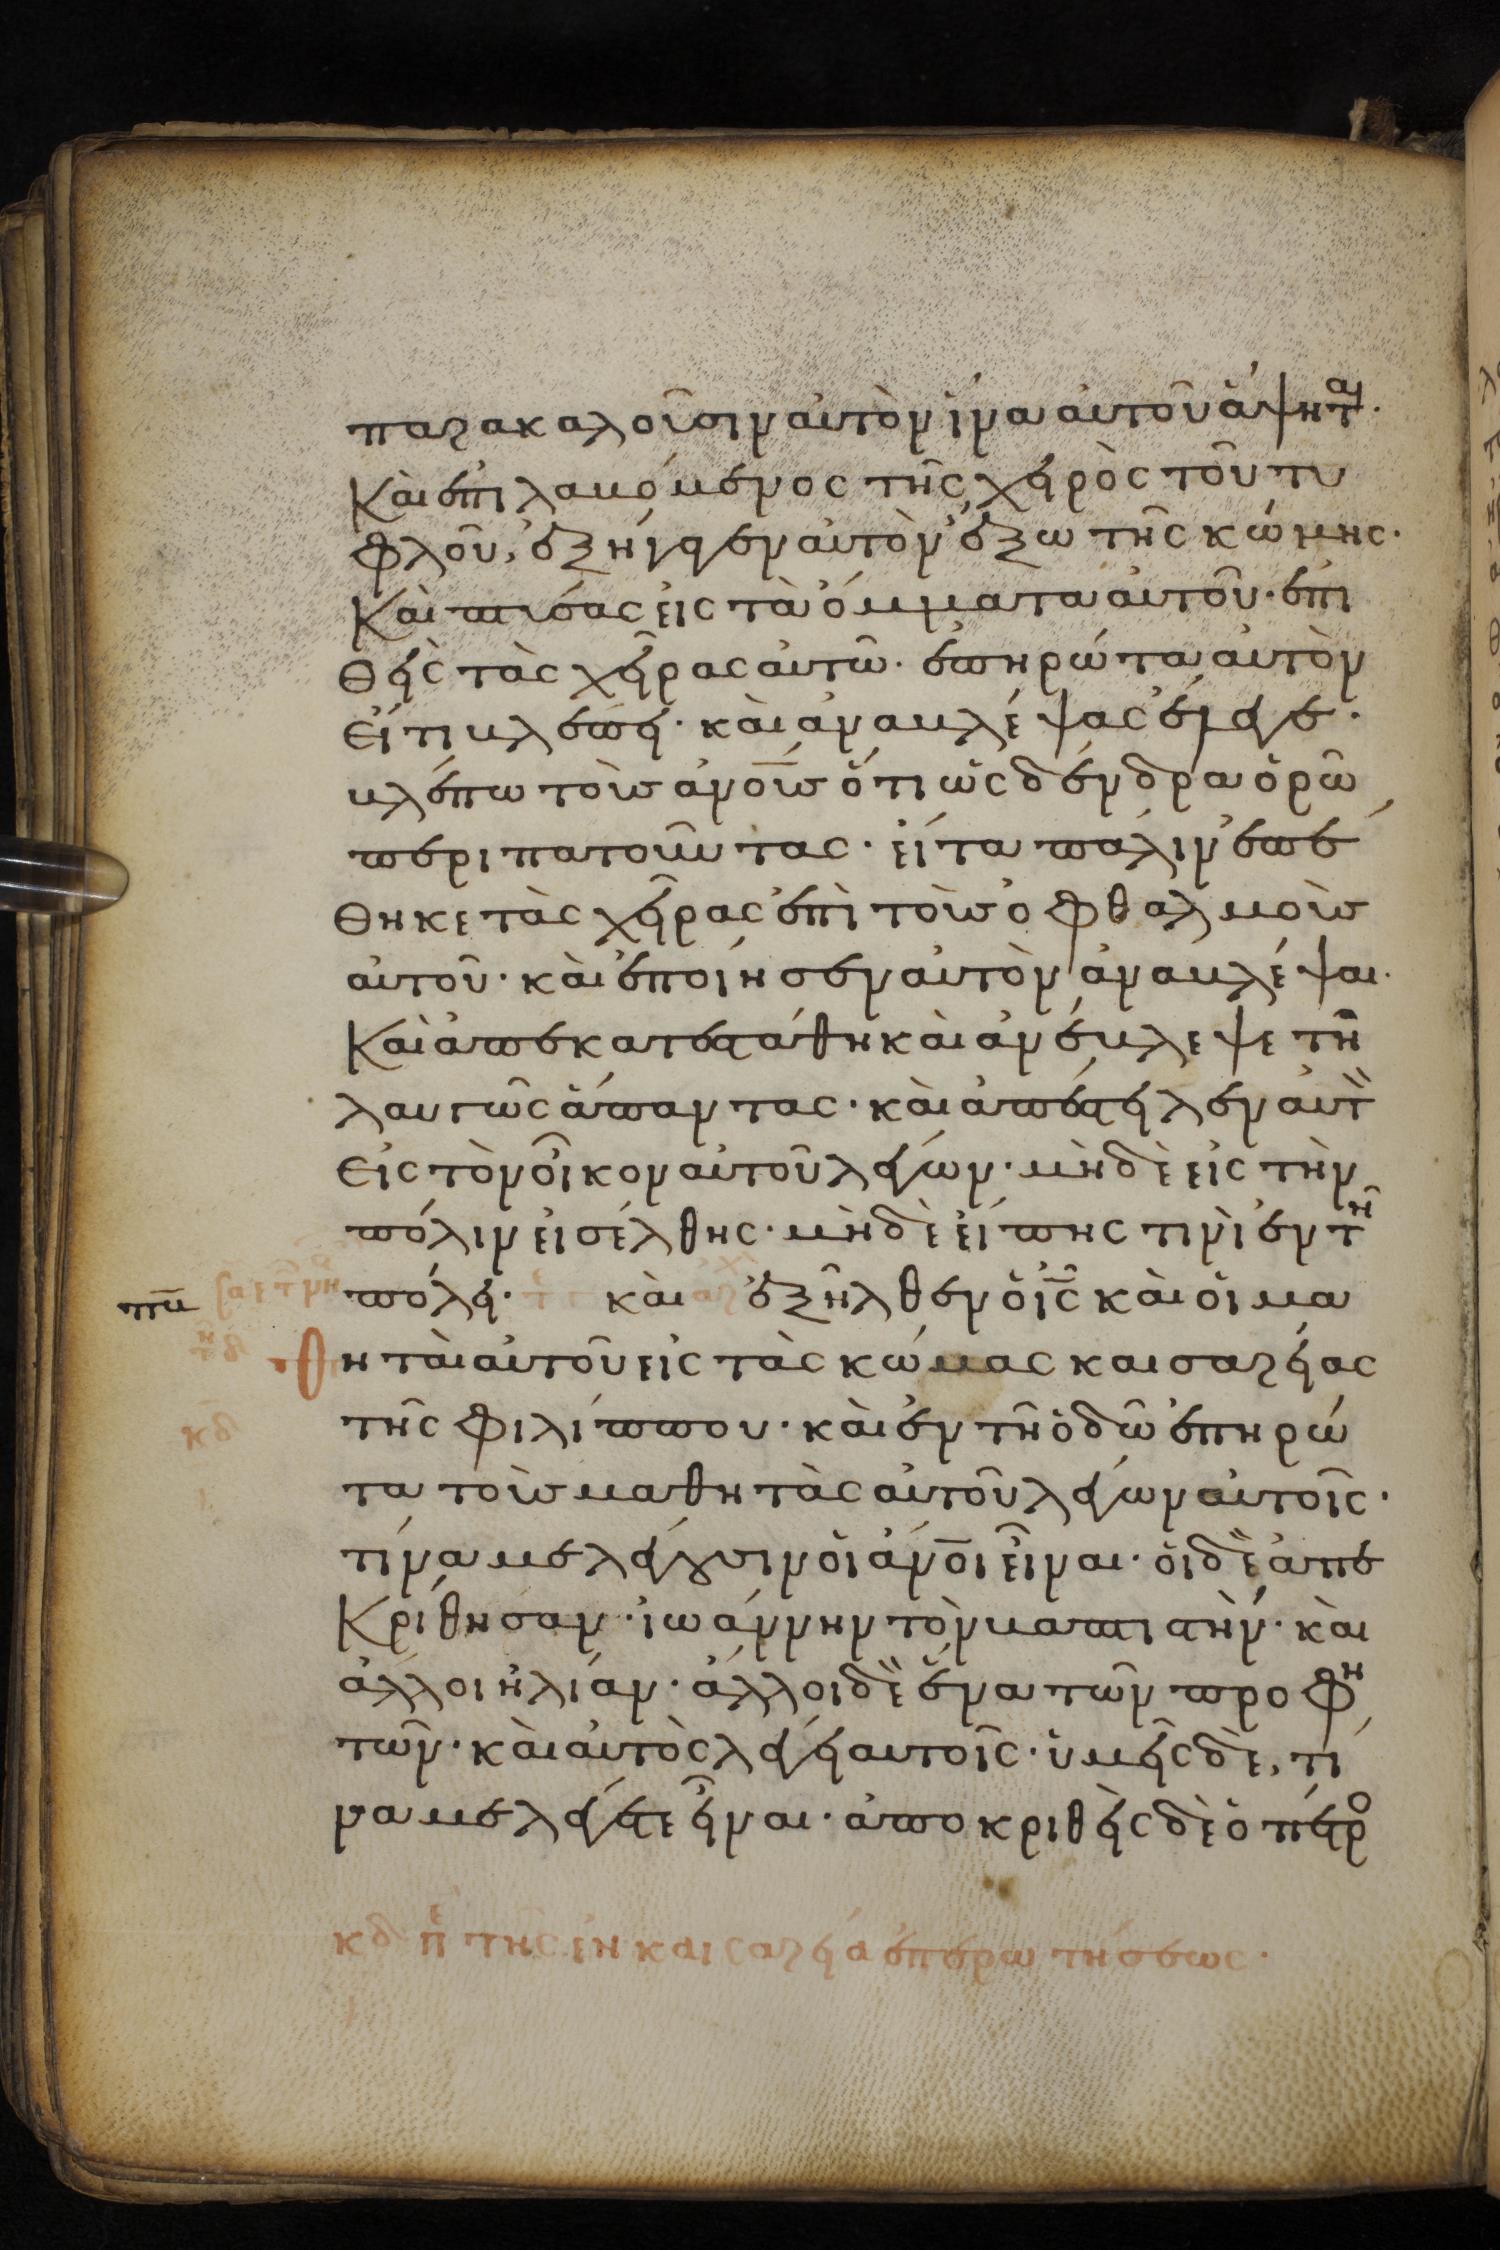 παρακαλοῦσιν αὐτὸν ἵνα αὐτοῦ ἅψητ(αι).
Καὶ ἐπιλαβόμενος τῆς χειρὸς τοῦ τυ
φλοῦ, ἐξήγαγεν αὐτὸν ἔξω τῆς κώμης·
Καὶ πτύσας εἰς τὰ ὄμματα αὐτοῦ· ἐπι
θεὶς τὰς χεῖρας αὐτῶ· ἐπηρώτα αὐτὸν
Εἴ τι βλέπει· καὶ ἀναβλέψας ἔλεγε·
βλέπω τοὺς ἀνο̅υς ὅτι ὡς δένδρα ὁρῶ
περιπατοῦντας· εἶτα πάλιν ἐπέ
θηκε τὰς χεῖρας ἐπὶ τοὺς ὀφθαλμοὺς
αὐτοῦ· καὶ ἐποίησεν αὐτὸν ἀναβλέψαι·
Καὶ ἀπεκατεστάθη καὶ ἀνέβλεψε τη
λαυγῶς ἅπαντας· καὶ ἀπέστειλεν αὐτ(ὸν)
Εἰς τὸν οἶκον αὐτοῦ λέγων· μὴδὲ εἰς τὴν
πόλιν εἰσέλθης· μὴδὲ εἴπης τινὶ ἐν τῆ
πόλει· καὶ ἐξῆλθεν ὁ ι̅ς καὶ οἱ μα
θηταὶ αὐτοῦ εἰς τὰς κώμας καισαρείας
τῆς φιλίππου· καὶ ἐν τῆ ὁδῶ ἐπηρώ
τα τοὺς μαθητὰς αὐτοῦ λέγων αὐτοῖς·
τίνα με λέγουσιν οἱ ἀνο̅ι εἶναι· οἱ δὲ ἀπε
Κρίθησαν· ἰωάννην τὸν βαπτιστὴν· καὶ
ἄλλοι ἠλίαν· ἄλλοι δὲ ἕνα τῶν προφη
τῶν· καὶ αὐτὸς λέγει αὐτοῖς· ὑμεῖς δὲ, τί
να με λέγετε εἶναι· ἀποκριθεὶς δὲ ὁ πέτρο
κδ π(ερὶ) τῆς ἐν καισαρεία ἐπερωτήσεως·